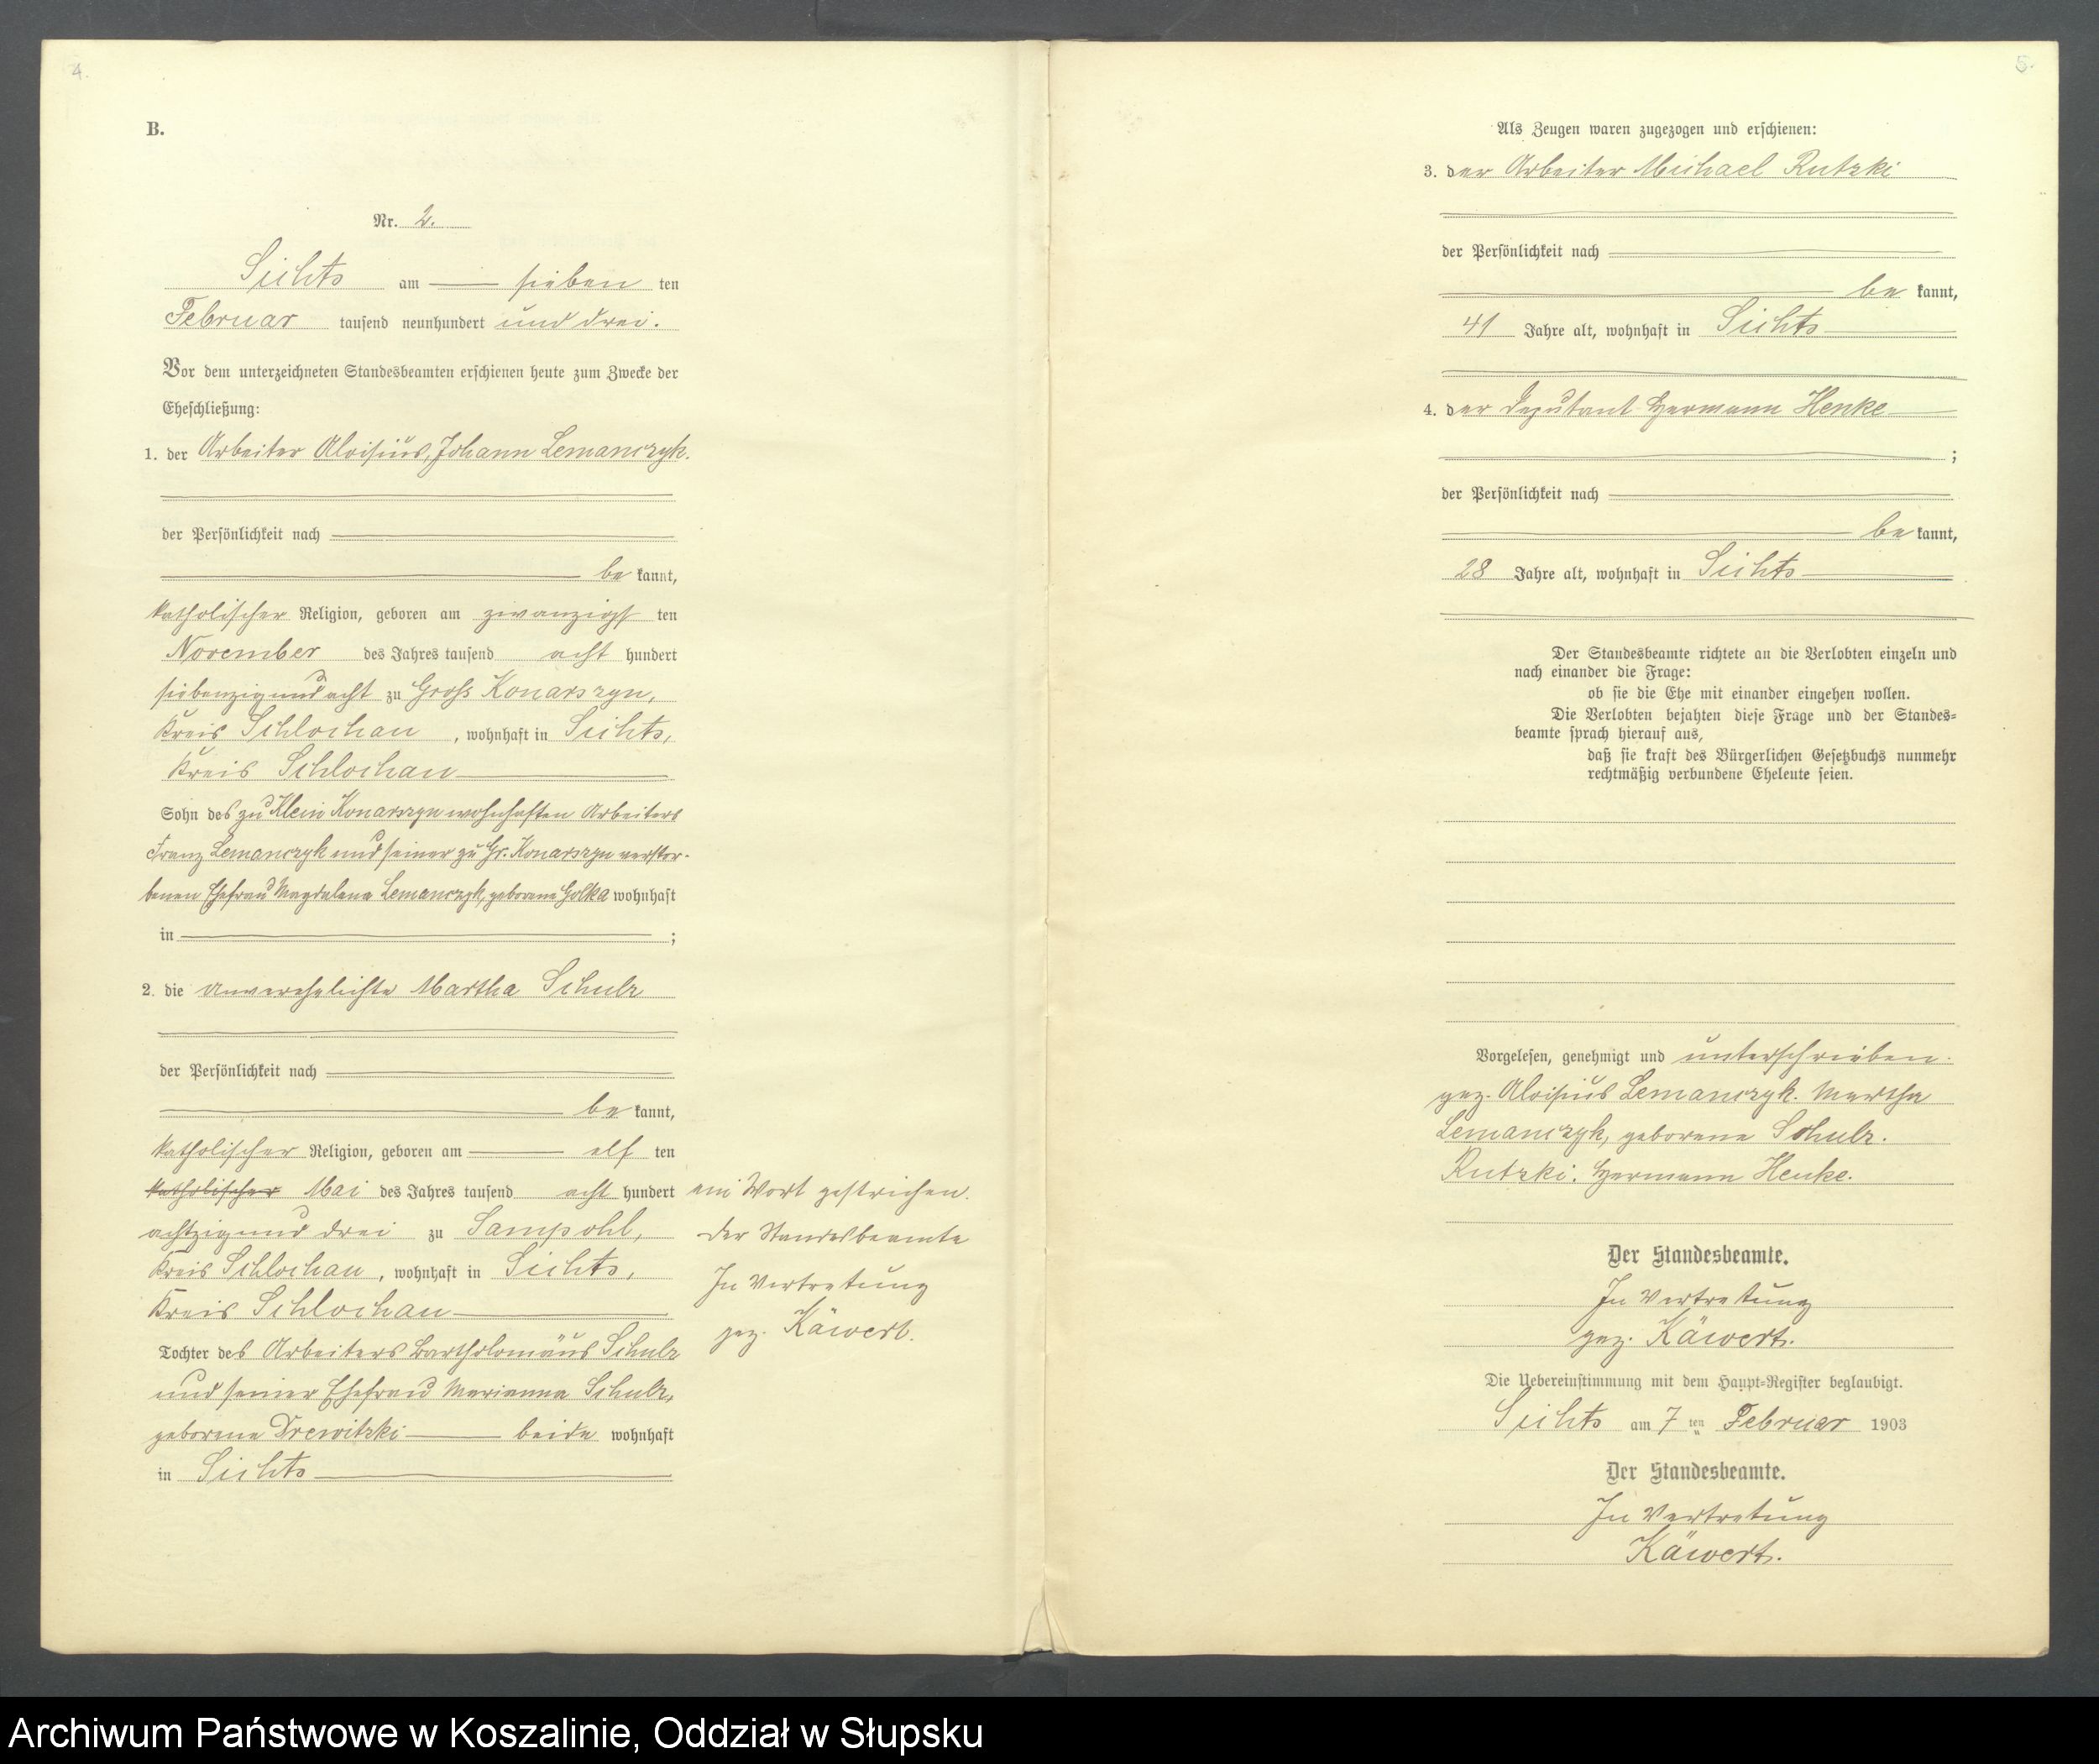 4.
B.
Nr. 2.
Sichts am sieben ten
Februar tausend neunhundert und drei.
Vor dem unterzeichneten Standesbeamten erschienen heute zum Zwecke der
Eheschließung:
1. der Arbeiter Aloisius, Johann Lemanczyk.
der Persönlichkeit nach
be kannt,
katholischer Religion, geboren am zwanzigst ten
November des Jahres tausend acht hundert
siebenzig und acht zu Gross Konarszyn,
Kreis Schlochau, wohnhaft in Sichts,
Kreis Schlochau
Sohn des zu Klein Konarszyn wohnhaften Arbeiters
Franz Lemanczyk und seiner zu Gr. Konarszyn verstor-
benen Ehefrau Magdalena Lemanczyk, geborene Golka wohnhaft
in ;
2. die unverehelichte Martha Schulz
der Persönlichkeit nach
be kannt,
katholischer Religion, geboren am elf ten
katholischer Mai des Jahres tausend acht hundert
achtzig und drei zu Sampohl,
Kreis Schlochau, wohnhaft in Sichts,
Kreis Schlochau
Tochter des Arbeiters Bartholomäus Schulz
und seiner Ehefrau Marianna Schulz,
geborene Drewitzki beide wohnhaft
in Sichts
ein Wort gestrichen.
Der Standesbeamte
In Vertretung
gez. Käwert.
5.
Als Zeugen waren zugezogen und erschienen:
3. der Arbeiter Michael Rutzki
der Persönlichkeit nach
be kannt,
41 Jahre alt, wohnhaft in Sichts
4. der Deputant Hermann Henke
;
der Persönlichkeit nach
be kannt,
28 Jahre alt, wohnhaft in Sichts
Der Standesbeamte richtete an die Verlobten einzeln und
nach einander die Frage:
ob sie die Ehe mit einander eingehen wollen.
Die Verlobten bejahten diese Frage und der Standes-
beamte sprach hierauf aus,
daß sie kraft des Bürgerlichen Gesetzbuchs nunmehr
rechtmäßig verbundene Eheleute seien.
Vorgelesen, genehmigt und unterschrieben.
gez. Aloisius Lemanczyk. Martha
Lemanczyk, geborene Schulz.
Rutzki. Hermann Henke.
Der Standesbeamte.
In Vertretung
gez. Käwert.
Die Uebereinstimmung mit dem Haupt-Register beglaubigt.
Sichts am 7 ten Februar 1903
Der Standesbeamte.
In Vertretung
Käwert.
Archiwum Państwowe w Koszalinie, Oddział w Słupsku